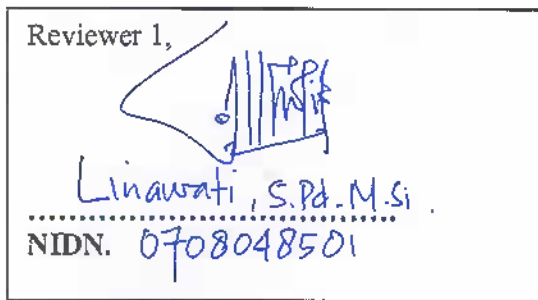 Reviewer 1,
Linawati, S.Pd. M.Si.
NIDN. 0708048501